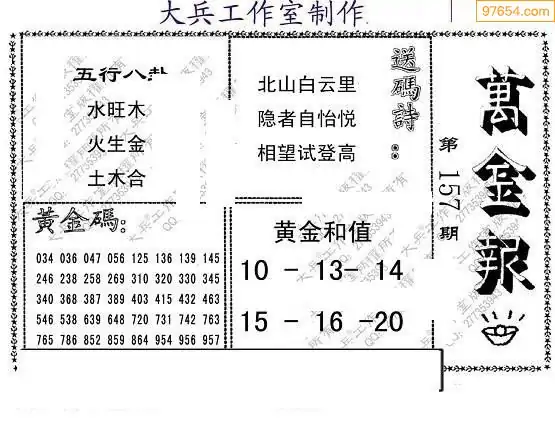 大兵工作室制作
97654.com
五行八卦
水旺木
火生金
土木合
送碼詩：
北山白云里
隐者自怡悦
相望试登高
萬金報
第157期
黃金碼:
034 036 047 056 125 136 139 145
246 238 258 269 310 320 330 345
340 368 387 389 403 415 432 463
546 538 639 648 720 731 742 763
765 786 852 859 864 954 956 957
黄金和值
10 - 13- 14
15 - 16 -20